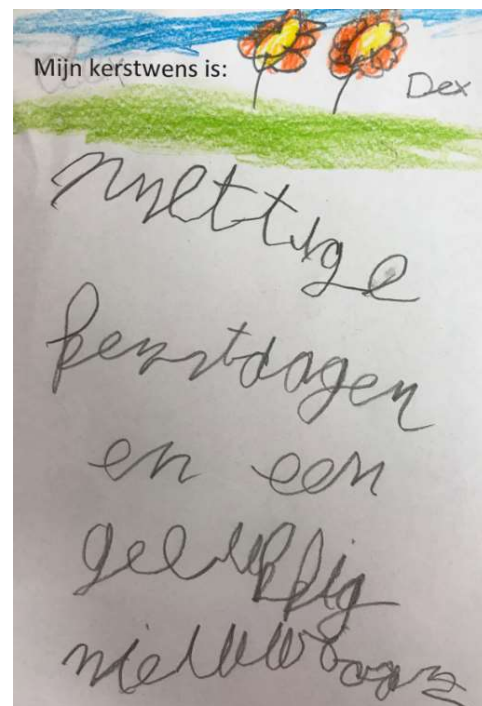 Mijn kerstwens is:
Dex
prettige
kerstdagen
en een
gelukkig